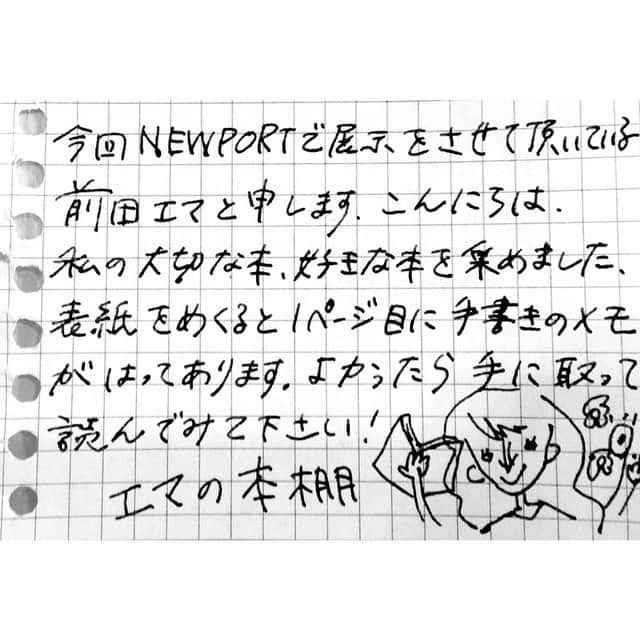 今回NEWPORTで展示をさせて頂いている
前田エマと申します。こんにちは。
私の大切な本、好きな本を集めました。
表紙をめくると1ページ目に手書きのメモ
がはってあります。よかったら手に取って
読んでみて下さい!
エマの本棚